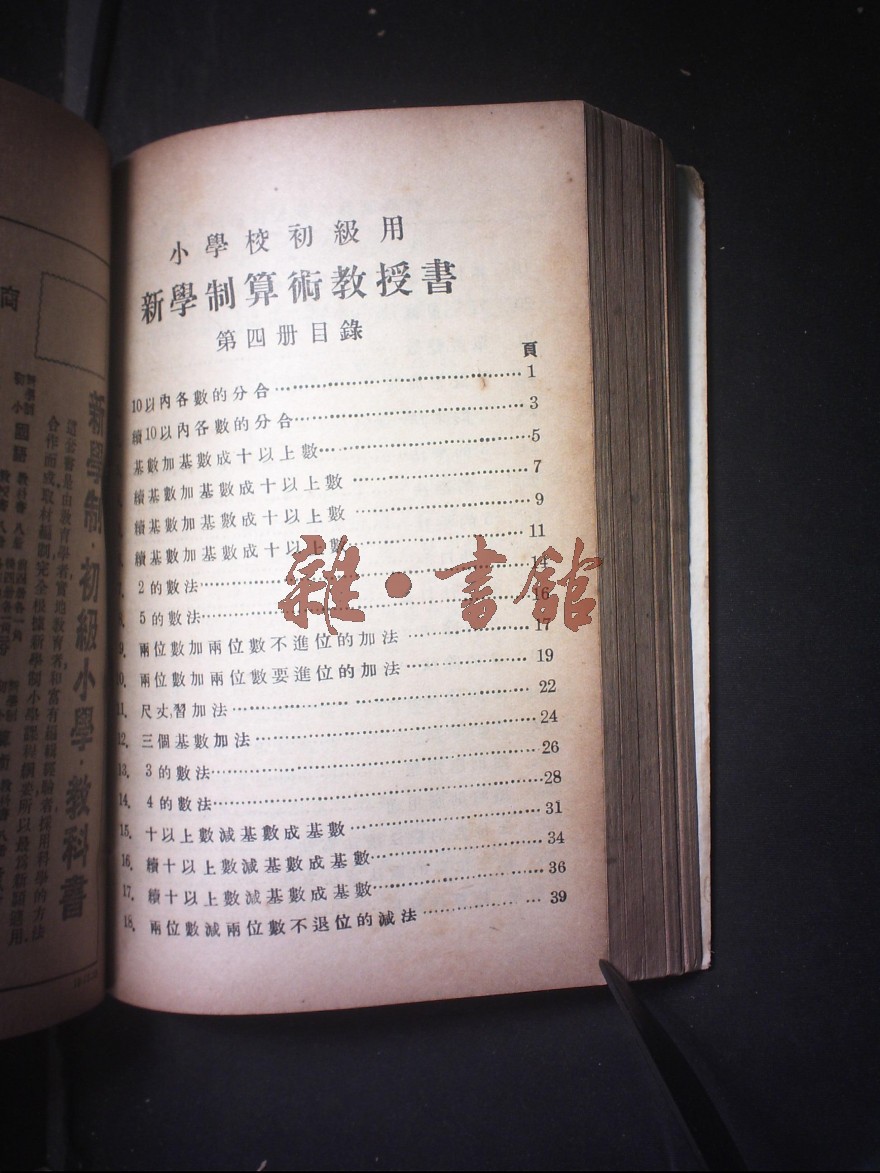 小學校初級用
新學制算術教授書
第四册目錄
頁
10以內各數的分合 1
續10以內各數的分合 3
基數加基數成十以上數 5
續基數加基數成十以上數 7
續基數加基數成十以上數 9
續基數加基數成十以上數 11
2的數法 14
5的數法 16
9. 兩位數加兩位數不進位的加法 17
10. 兩位數加兩位數要進位的加法 19
11. 尺丈,習加法 22
12. 三個基數加法 24
13. 3的數法 26
14. 4的數法 28
15. 十以上數減基數成基數 31
16. 續十以上數減基數成基數 34
17. 續十以上數減基數成基數 36
18. 兩位數減兩位數不退位的減法 39
雜·書館
商
新學制·初級小學·教科書